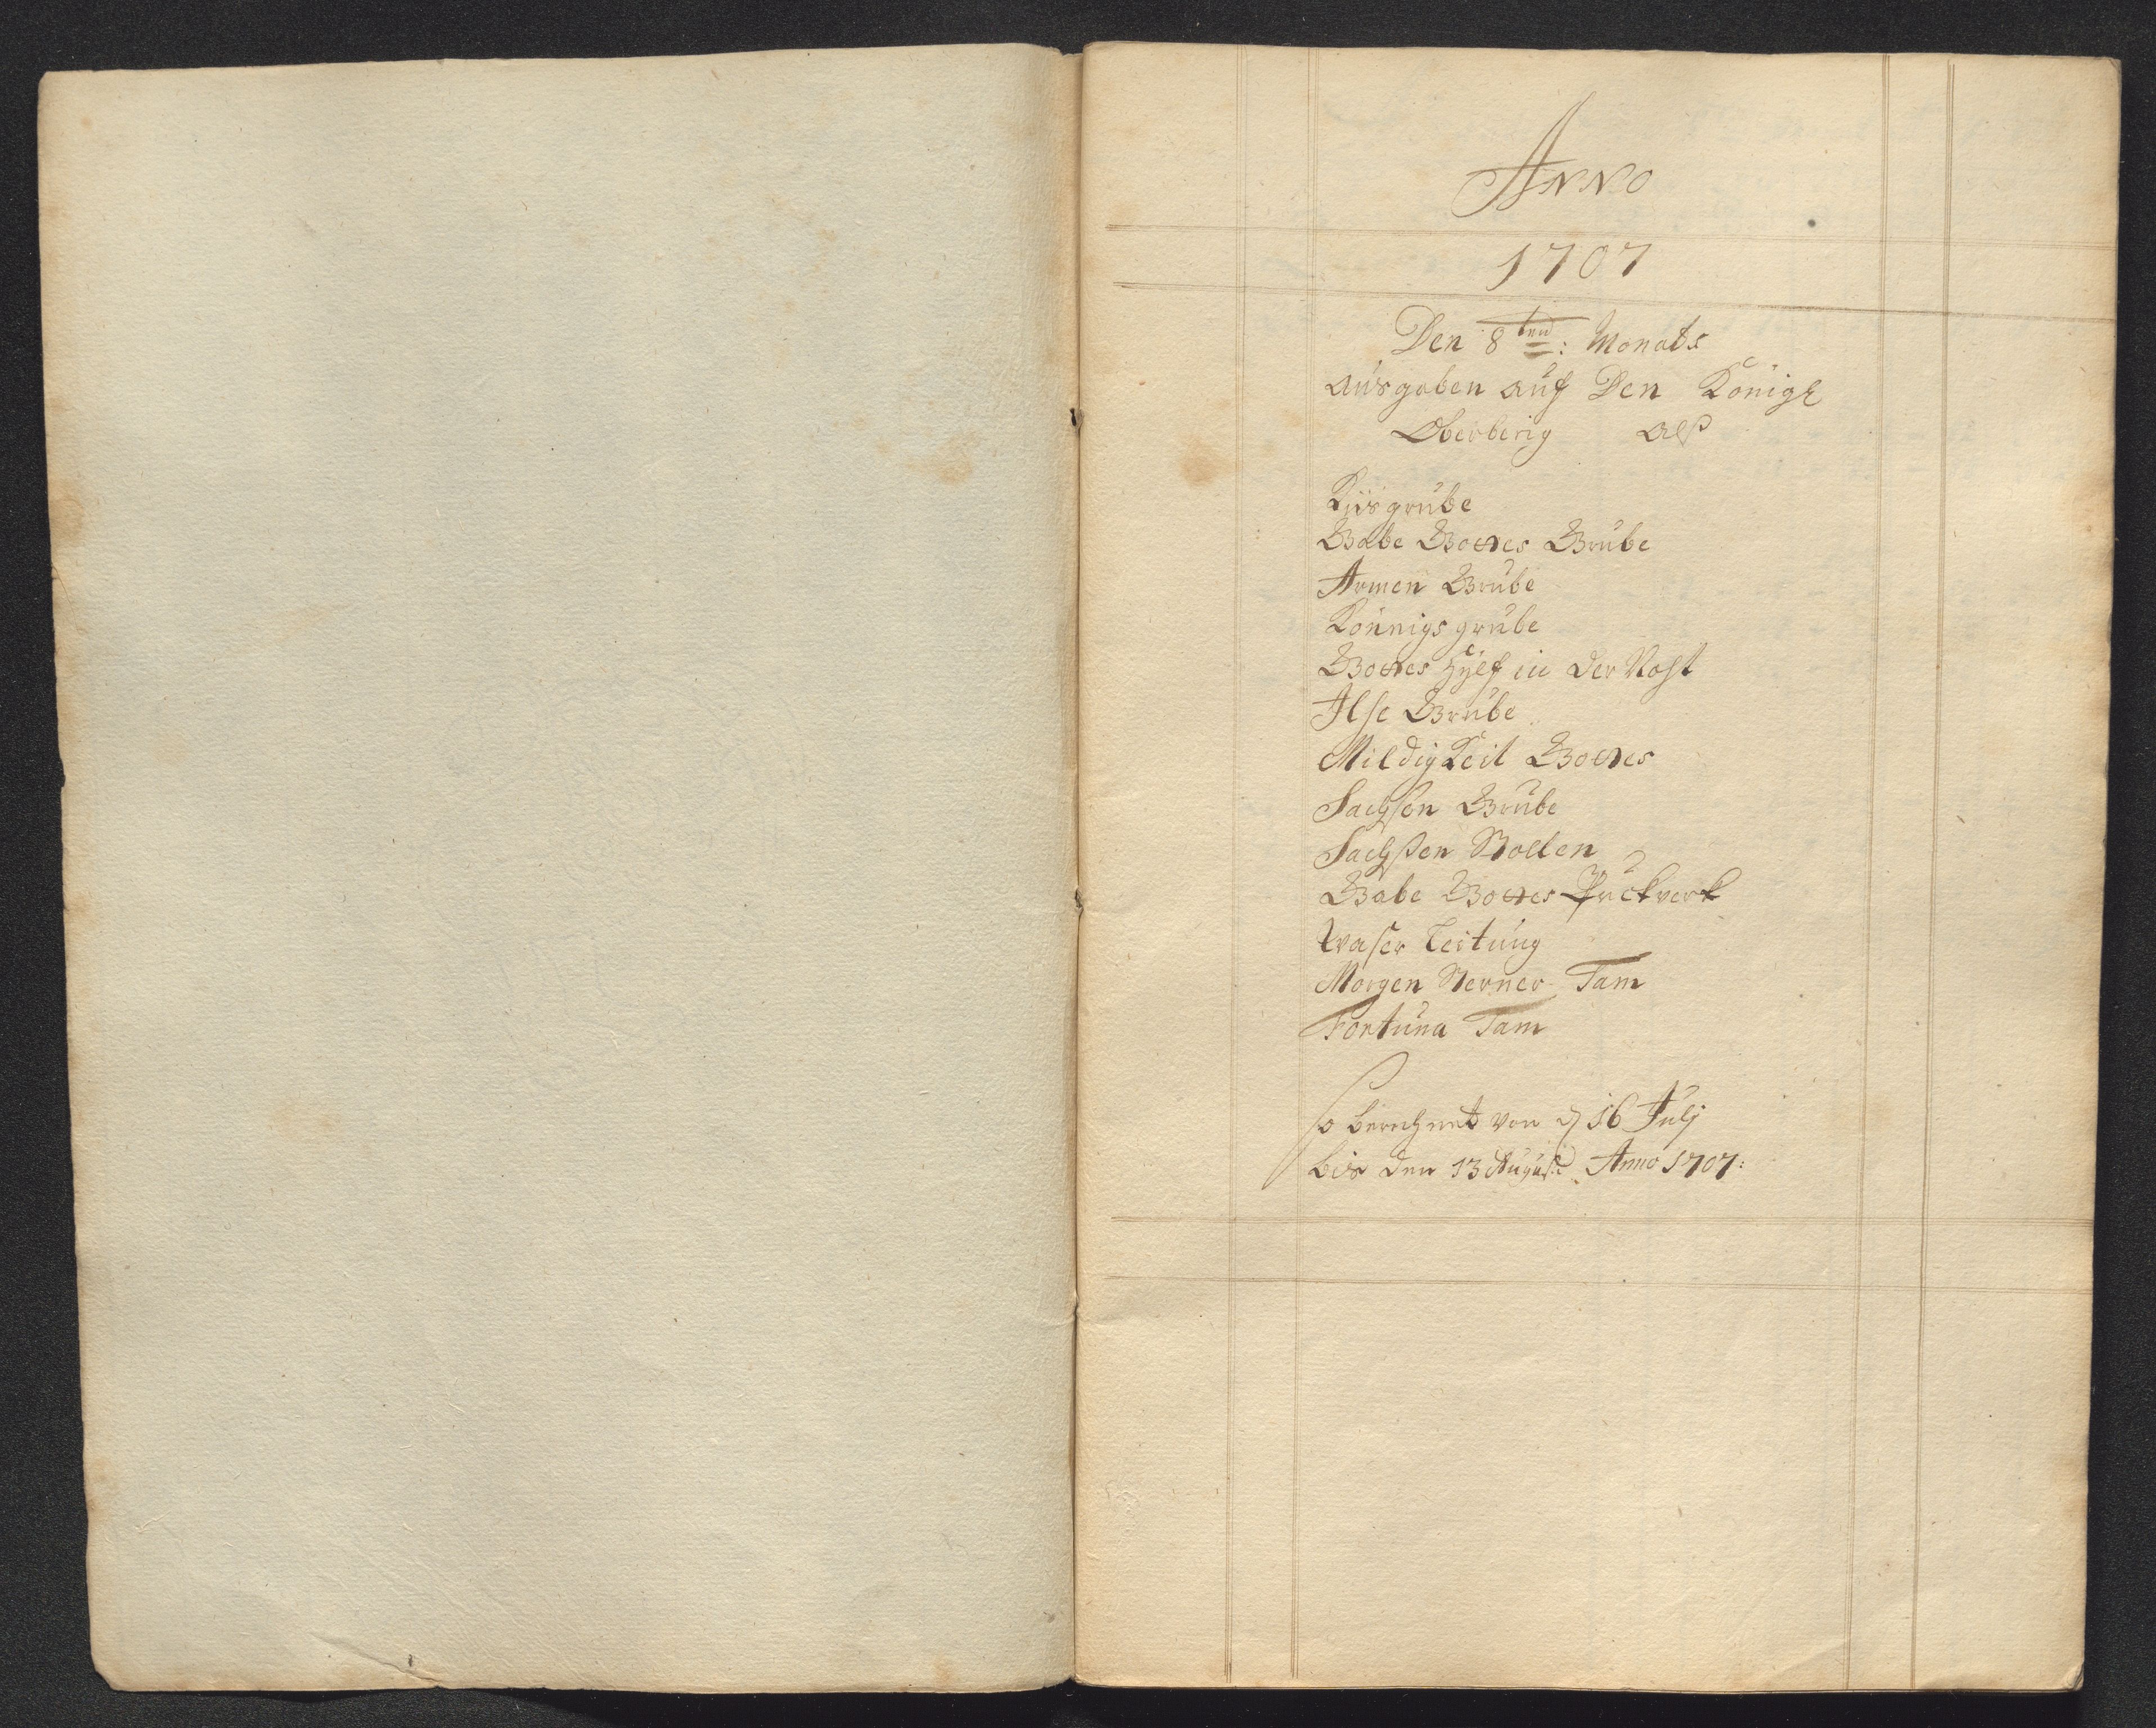 Anno
1707
Den 8ten: Monats
ausgaben auf Den Königl
Oberberig Alß
Kiisgrube
Gabe Gottes Grube
Armen Grube
Königs grube
Gottes hülf in der Noht
Ilse Grube
Mildigkeit Gottes
Sachsen Grube
Sachßen Stollen
Gabe Gottes Puckverk
Waser Leitung
Morgen Sterner Tam
Fortuna Tam
so berechnet von d 16 Julj
bis den 13 August Anno 1707: